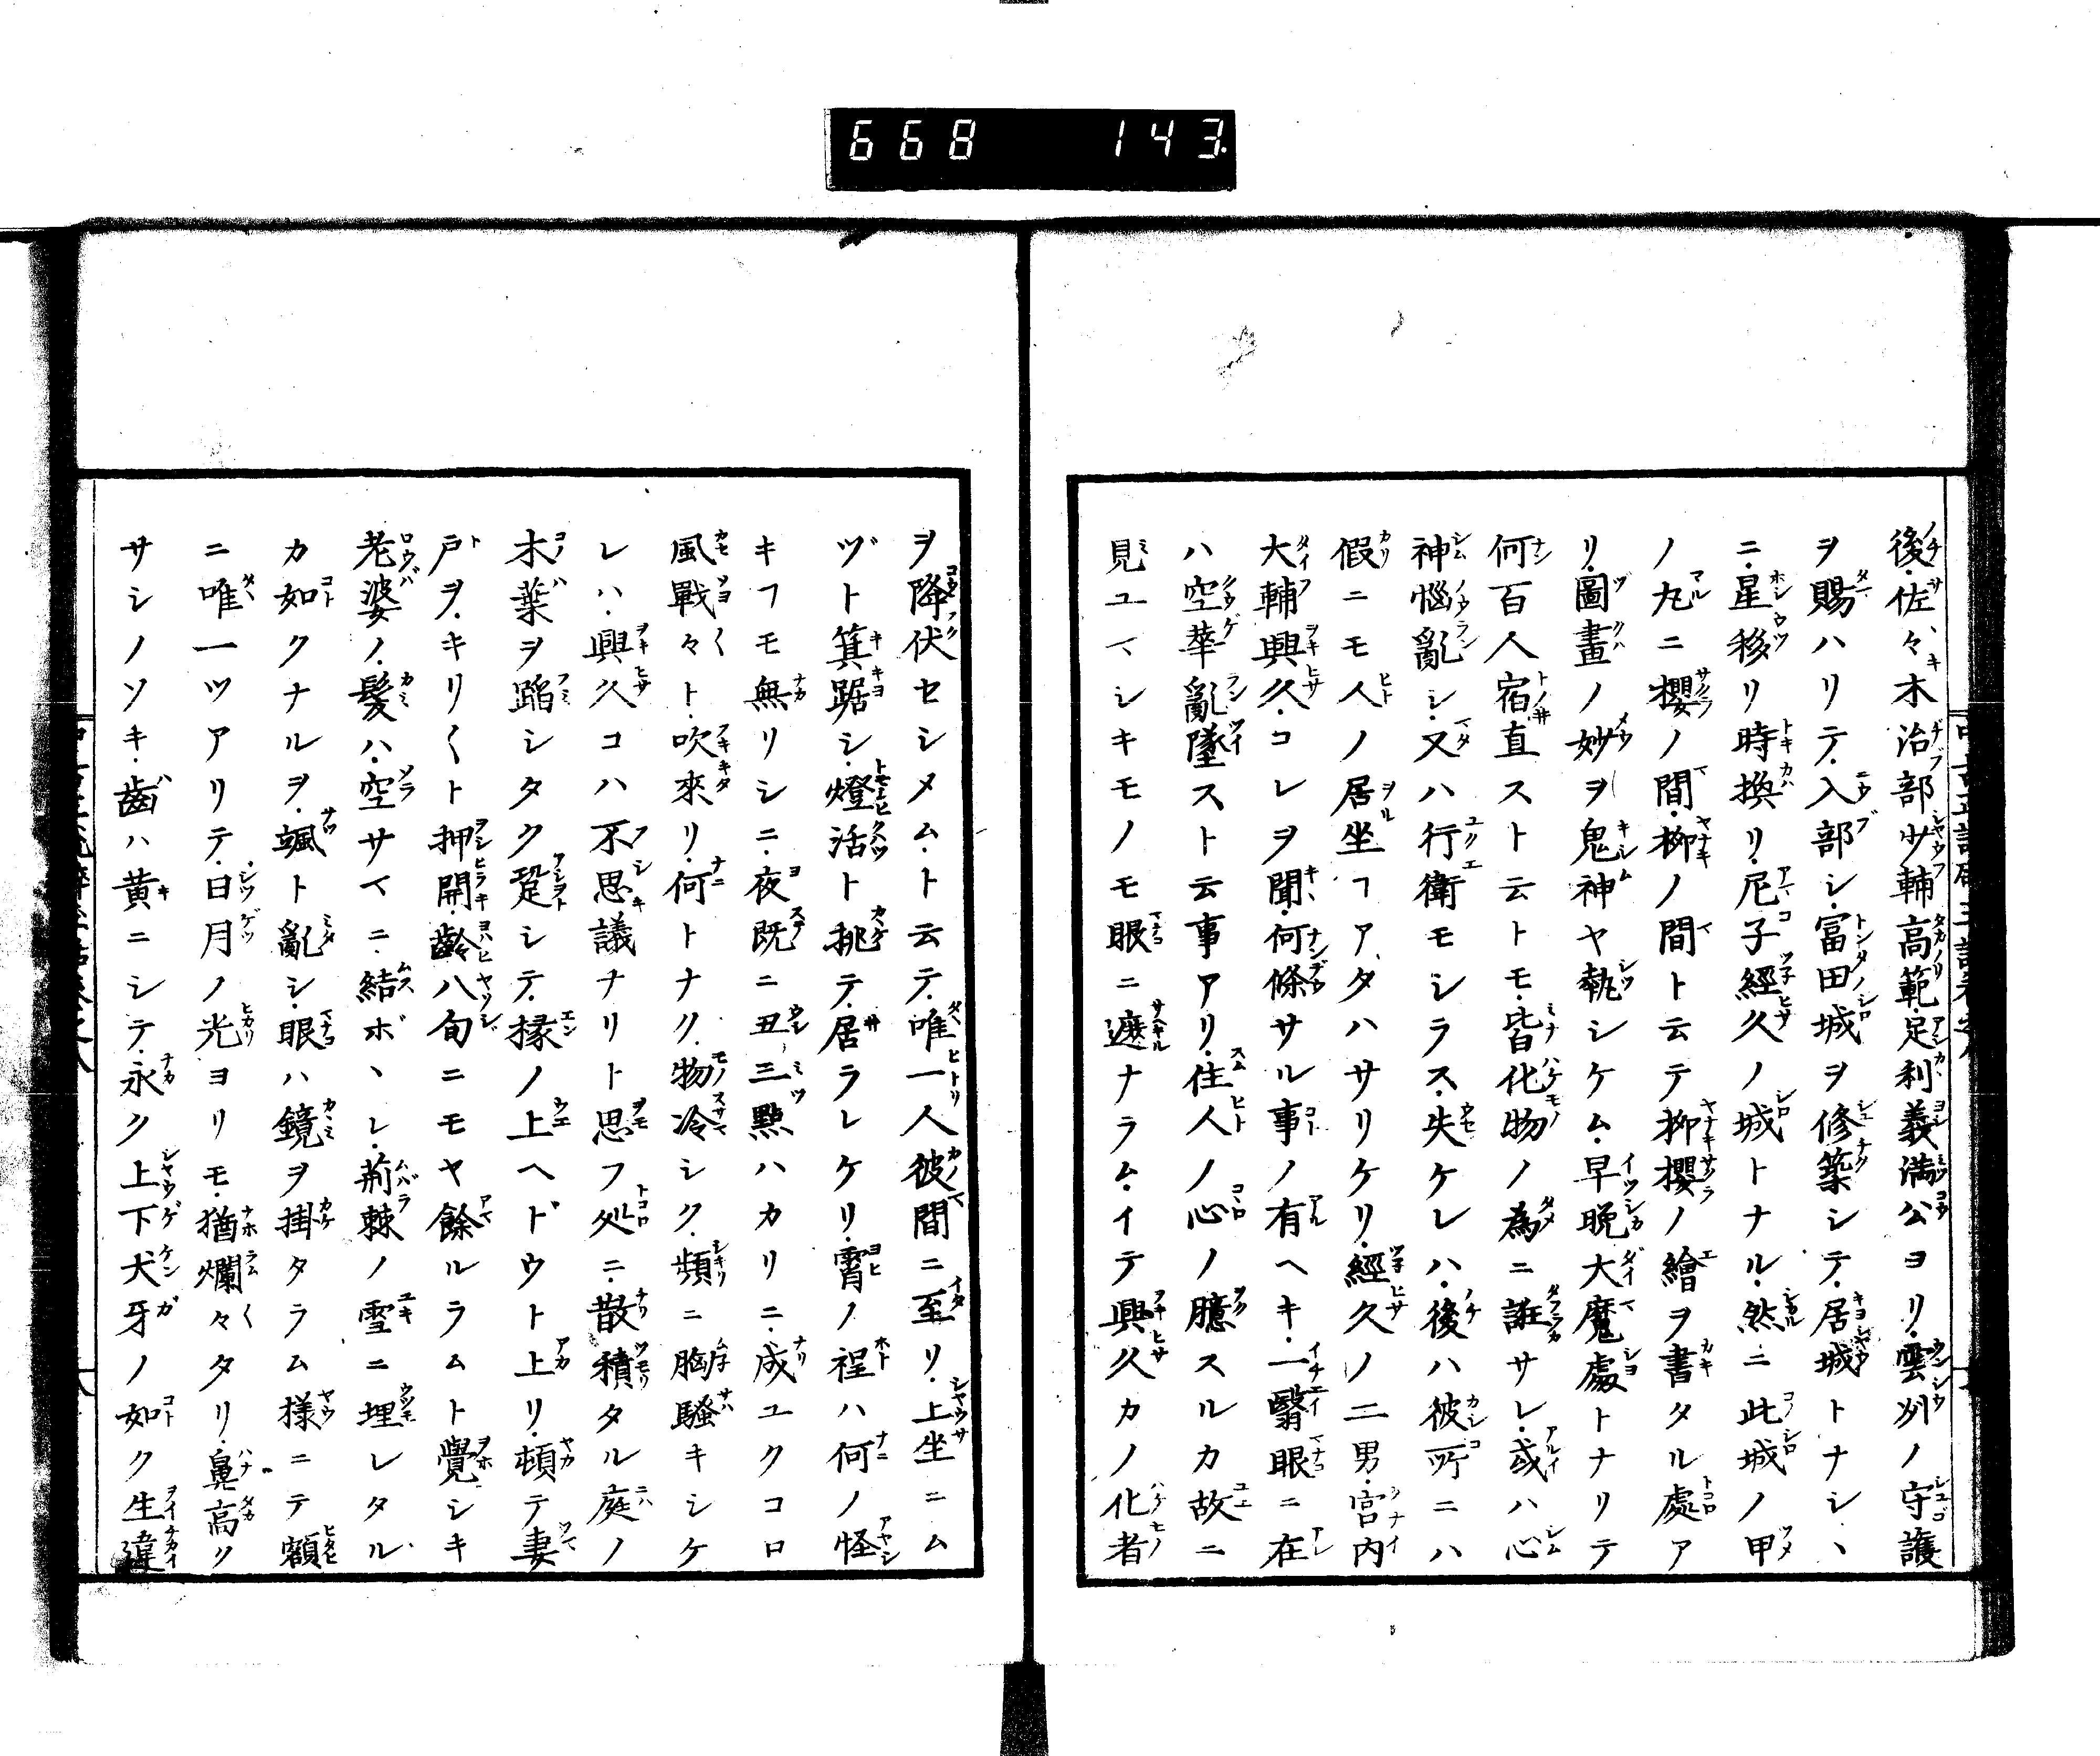 668 143.
後佐々木治部少輔高範足利義満公ヨリ雲州ノ守護
ヲ賜ハリテ入部シ富田城ヲ修築シテ居城トナシヽ
ニ星移リ時換リ尼子經久ノ城トナル然ニ此城ノ甲
ノ丸ニ櫻ノ間柳ノ間ト云テ柳櫻ノ繪ヲ書タル處ア
リ圖畫ノ妙ヲ鬼神ヤ執シケム早晩大魔處トナリテ
何百人宿直ストス云トモ皆化物ノ為ニ誑サレ或ハ心
神惱亂シ又ハ行衛モシラス失ケレハ後ハ彼所ニハ
假ニモ人ノ居坐ヿアタハサリケリ經久ノ二男宮内
大輔興久コレヲ聞何條サル事ノ有ヘキ一翳眼ニ在
ハ空華亂墜スト云事アリ住人ノ心ノ臆スルカ故ニ
見ユマシキモノモ眼ニ遮ナラムイテ興久カノ化者
ヲ降伏セシメムト云テ唯一人彼間ニ至リ上坐ニム
ヅト箕踞シ燈活ト挑テ居ラレケリ霄ノ程ハ何ノ怪
キヿモ無リシニ夜既ニ丑三點ハカリニ成ユクコロ
風戰々ト吹來リ何トナク物冷シク頻ニ胸騷キシケ
レハ興久コハ不思議ナリト思フ処ニ散積タル庭ノ
木葉ヲ蹈シタク跫シテ椽ノ上ヘドウト上リ頓テ妻
戸ヲキリ〱ト押開齡八旬ニモヤ餘ルラムト覺シキ
老婆ノ髪ハ空サマニ結ボヽレ荊棘ノ雪ニ埋レタル
カ如クナルヲ颯ト亂シ眼ハ鏡ヲ掛タラム様ニテ額
ニ唯一ツアリテ日月ノ光ヨリモ猶爛々タリ鼻高ク
サシノソキ齒ハ黄ニシテ永ク上下犬牙ノ如ク生違